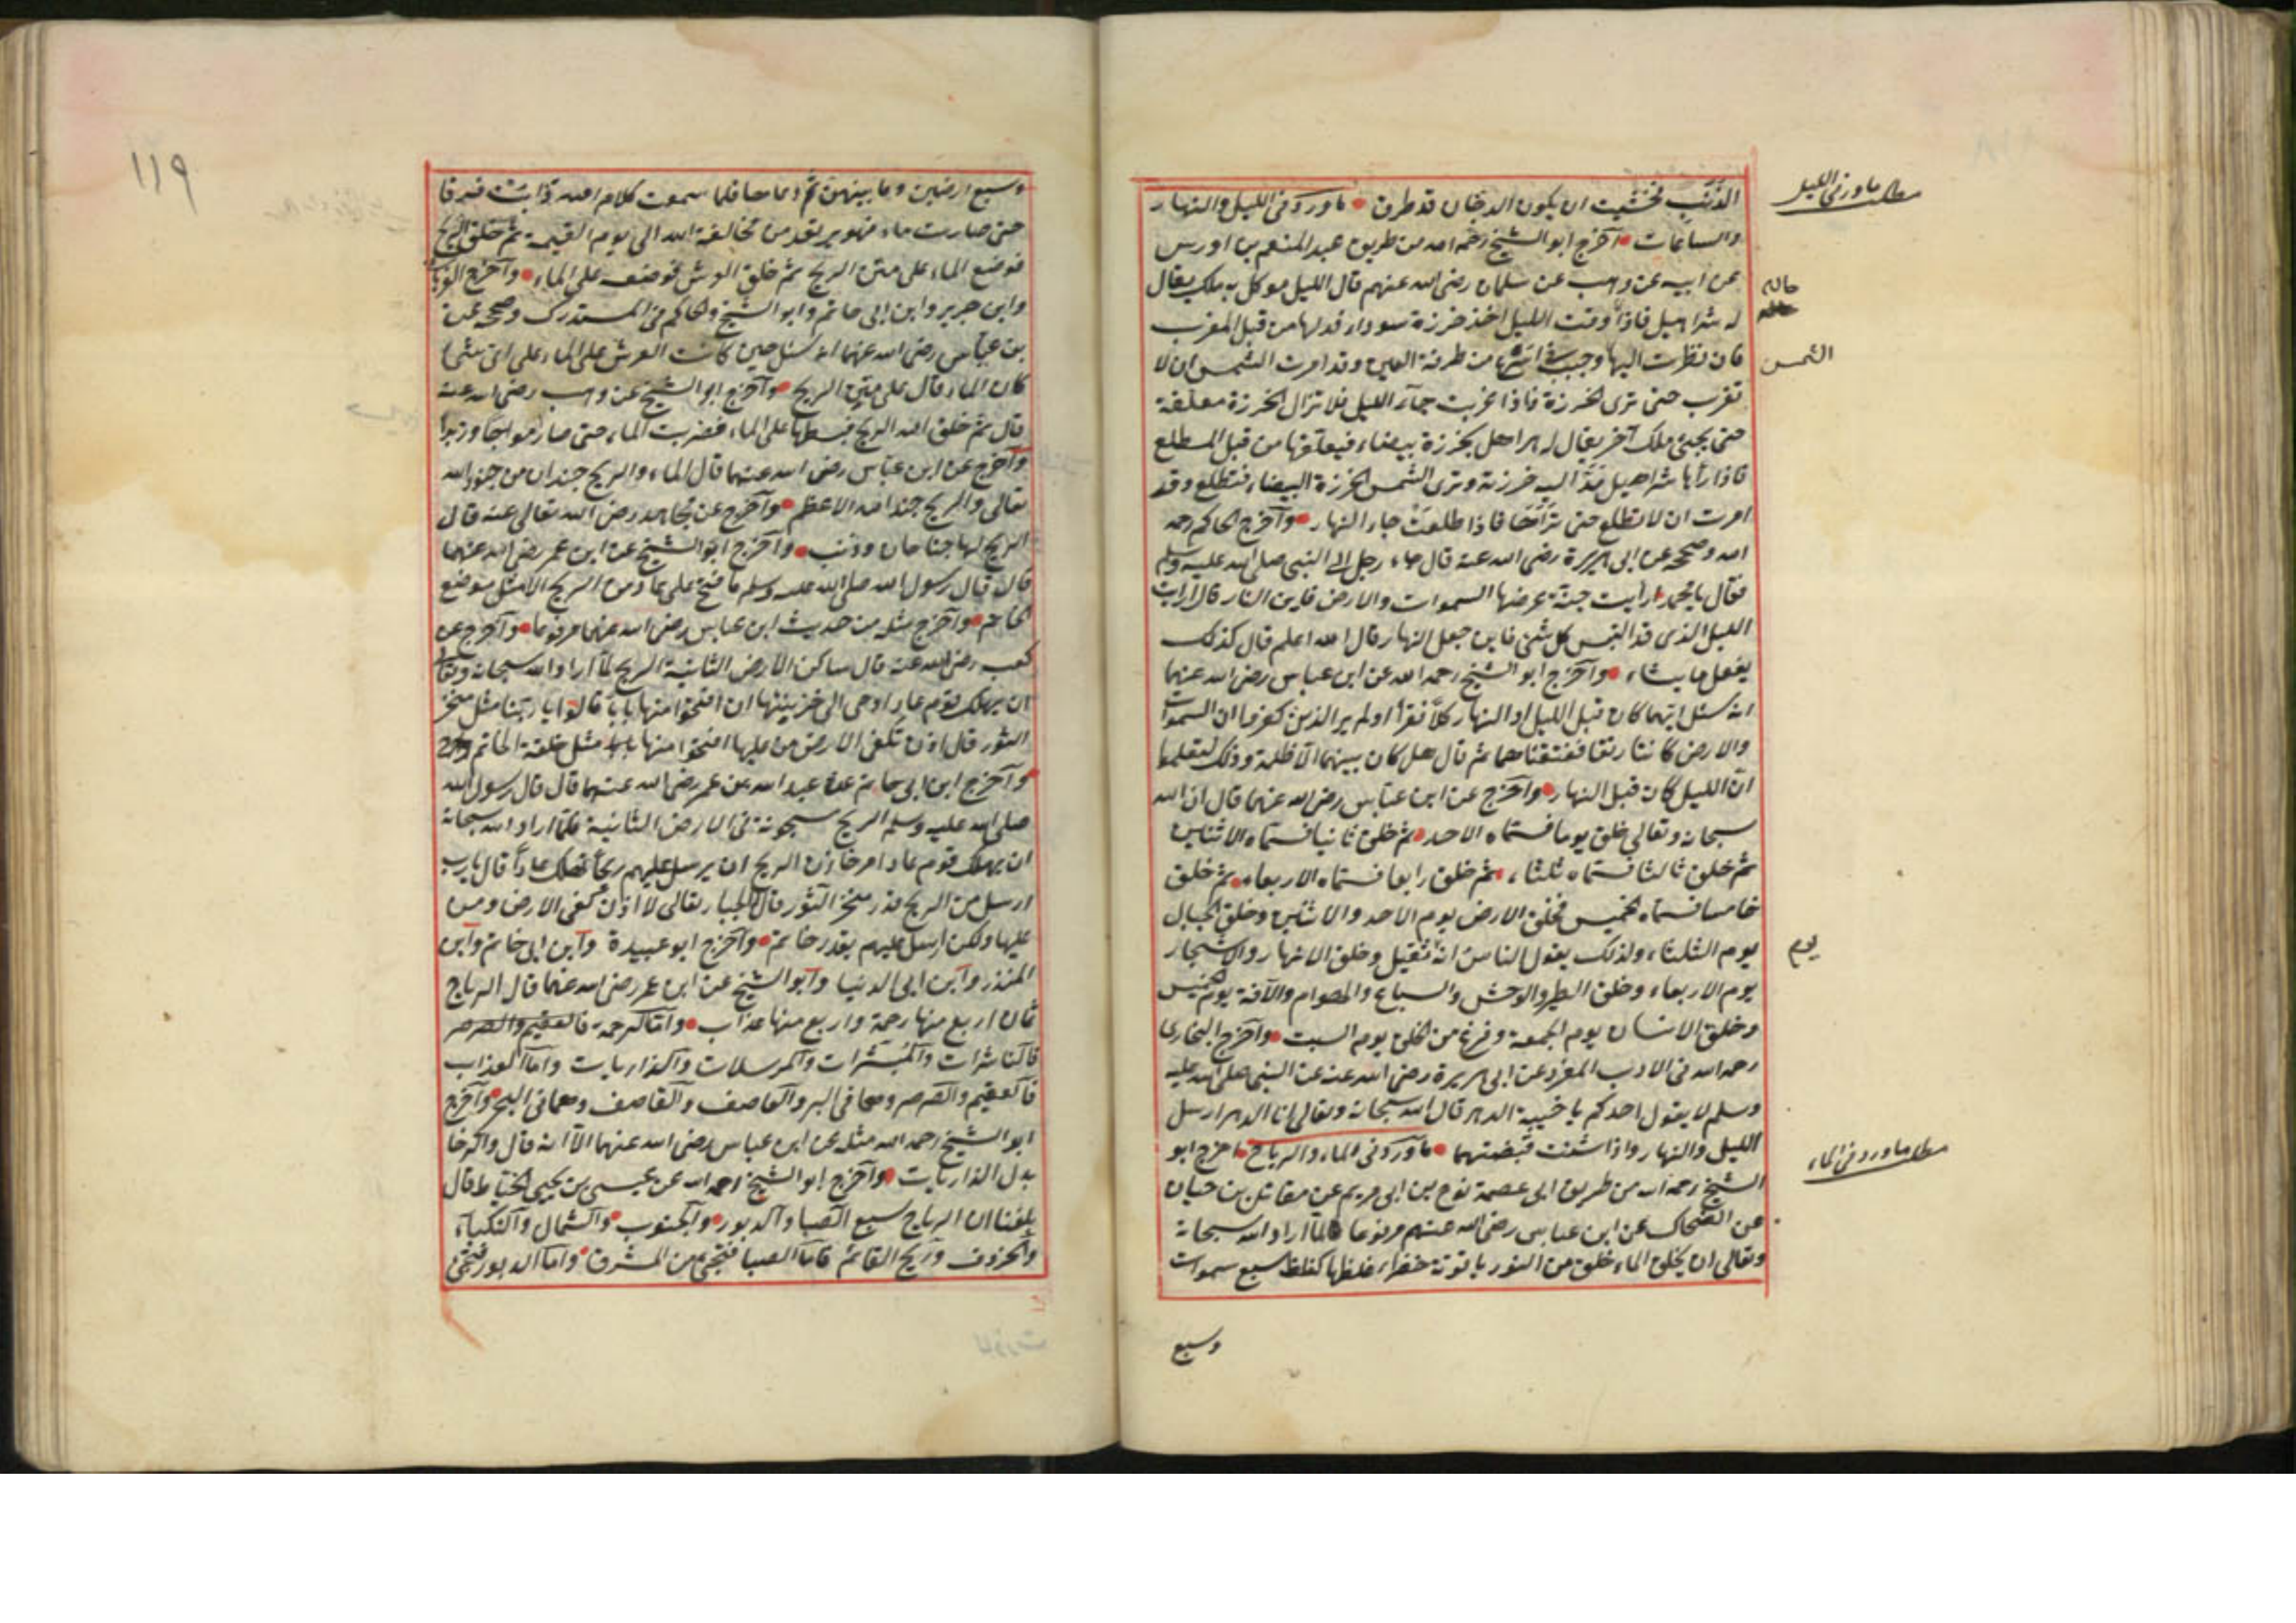 الذنب فخشيت ان يكون الدخان قد طرق ما ورد فى الليل والنهار
والساعات اخرج ابو الشيخ رحمه الله من طريق عبد المنعم بن ادريس
عن ابيه عن وهب عن سلمان رضى الله عنهم قال الليل موكل به ملك يقال
له شراهيل فاذا وقت الليل اخذ خرزة سوداء فدلها من قبل المغرب
فان نظرت اليها وجبت فى اسرع من طرفة العين وقد امرت الشمس ان لا
تغرب حتى ترى الخرزة فاذا غربت جاء الليل فلا تزال الخرزة معلقة
حتى يجئ ملك آخر يقال له هراهل بخرزة بيضاء فيعلقها من قبل المطلع
فاذا رأها شراهيل مد اليه خرزته وترى الشمس الخرزة البيضاء فتطلع وقد
امرت ان لا تطلع حتى تراها فاذا طلعت جاء النهار واخرج الحاكم رحمه
الله وصححه عن ابى هريرة رضى الله عنه قال جاء رجل الى النبى صلى الله عليه وسلم
فقال يا محمد ارأيت جنة عرضها السموات والارض فاين النار قال ارايت
الليل الذى قد البس كل شئ فاين جعل النهار قال الله اعلم قال كذلك
يفعل ما يشاء واخرج ابو الشيخ رحمه الله عن ابن عباس رضى الله عنهما
انه سئل ايهما كان قبل الليل او النهار فقرأ اولم ير الذين كفروا ان السموات
والارض كانتا رتقا ففتقناهما ثم قال هل كان بينهما الا ظلمة وذلك لتعلموا
ان الليل كان قبل النهار واخرج عن ابن عباس رضى الله عنهما قال ان الله
سبحانه وتعالى خلق يوما فسماه الاحد ثم خلق ثانيا فسماه الاثنين
ثم خلق ثالثا فسماه ثلثاء ثم خلق رابعا فسماه الاربعاء ثم خلق
خامسا فسماه الخميس فخلق الارض يوم الاحد والاثنين وخلق الجبال
يوم الثلثاء ولذلك يقول الناس انه ثقيل وخلق الانهار والاشجار
يوم الاربعاء وخلق الطير والوحش والسباع والهوام والآفة يوم الخميس
وخلق الانسان يوم الجمعة وفرغ من الخلق يوم السبت واخرج البخارى
رحمه الله فى الادب المفرد عن ابى هريرة رضى الله عنه عن النبى صلى الله عليه
وسلم لا يقول احدكم يا خيبة الدهر قال الله سبحانه وتعالى انا الدهر ارسل
الليل والنهار واذا شئت قبضتهما ما ورد فى الماء والرياح اخرج ابو
الشيخ رحمه الله من طريق ابى عصمة نوح بن ابى مريم عن مقاتل بن حيان
عن الضحاك عن ابن عباس رضى الله عنهم مرفوعا لما اراد الله سبحانه
وتعالى ان يخلق الماء خلق من النور ياقوتة خضراء غلظها كغلظ سبع سموات
وسبع
مطلب ما ورد فى الليل
حاله
الشمس
يوم
مطلب ما ورد فى الماء
١١٩
وسبع ارضين وما بينهن ثم دعاها فلما سمعت كلام الله ذابت فرقا
حتى صارت ماء فهو يرتعد من مخافة الله الى يوم القيمة ثم خلق الريح
فوضع الماء على متن الريح ثم خلق العرش فوضعه على الماء واخرج
وابن جرير وابن ابى حاتم وابو الشيخ والحاكم فى المستدرك وصححه عن
بن عباس رضى الله عنهما انه سئل حين كانت العرش على الماء على اى شئ
كان الماء قال على متن الريح واخرج ابو الشيخ عن وهب رضى الله عنه
قال ثم خلق الله الريح فبسطها على الماء فضربت الماء حتى صار امواجا وزبدا
واخرج عن ابن عباس رضى الله عنهما قال الماء والريح جندان من جنود الله
تعالى والريح جند الله الاعظم واخرج عن مجاهد رضى الله تعالى عنه قال
الريح لها جناحان وذنب واخرج ابو الشيخ عن ابن عمر رضى الله عنهما
قال قال رسول الله صلى الله عليه وسلم ما فتح على عاد من الريح الا مثل موضع
الخاتم واخرج مثله من حديث ابن عباس رضى الله عنهما مرفوعا واخرج عن
كعب رضى الله عنه قال ساكن الارض الثانية الريح لما اراد الله سبحانه وتعالى
ان يهلك قوم عاد اوحى الى خزنتها ان افتحوا منها بابا قالوا يا ربنا مثل منخر
الثور قال اذن تكفى الارض من عليها افتحوا منها مثل حلقة الخاتم
واخرج ابن ابى حاتم عن عبد الله عن عمر رضى الله عنهما قال قال رسول الله
صلى الله عليه وسلم الريح مسجونة فى الارض الثانية فلما اراد الله سبحانه
ان يهلك قوم عاد امر خازن الريح ان يرسل عليهم ريحا تهلك عادا قال يا رب
ارسل من الريح قدر منخر الثور قال الجبار تعالى لا اذن تكفى الارض ومن
عليها ولكن ارسل عليهم بقدر خاتم واخرج ابو عبيدة وابن ابى حاتم وابن
المنذر وابن ابى الدنيا وابو الشيخ عن ابن عمر رضى الله عنهما قال الرياح
ثمان اربع منها رحمة واربع منها عذاب واما الرحمة فالعقيم والصرصر
فالناشرات والمبشرات والمرسلات والذاريات واما العذاب
فالعقيم والصرصر وهما فى البر والعاصف والقاصف وهما فى البحر واخرج
ابو الشيخ رحمه الله مثله عن ابن عباس رضى الله عنهما الا انه قال والرخا
بدل الذاريات واخرج ابو الشيخ رحمه الله عن عيسى بن يحيى الخياط قال
بلغنا ان الرياح سبع الصبا والدبور والجنوب والشمال والنكباء
والخروف وريح القائم فاما الصبا فتجئ من المشرق واما الدبور فتجئ